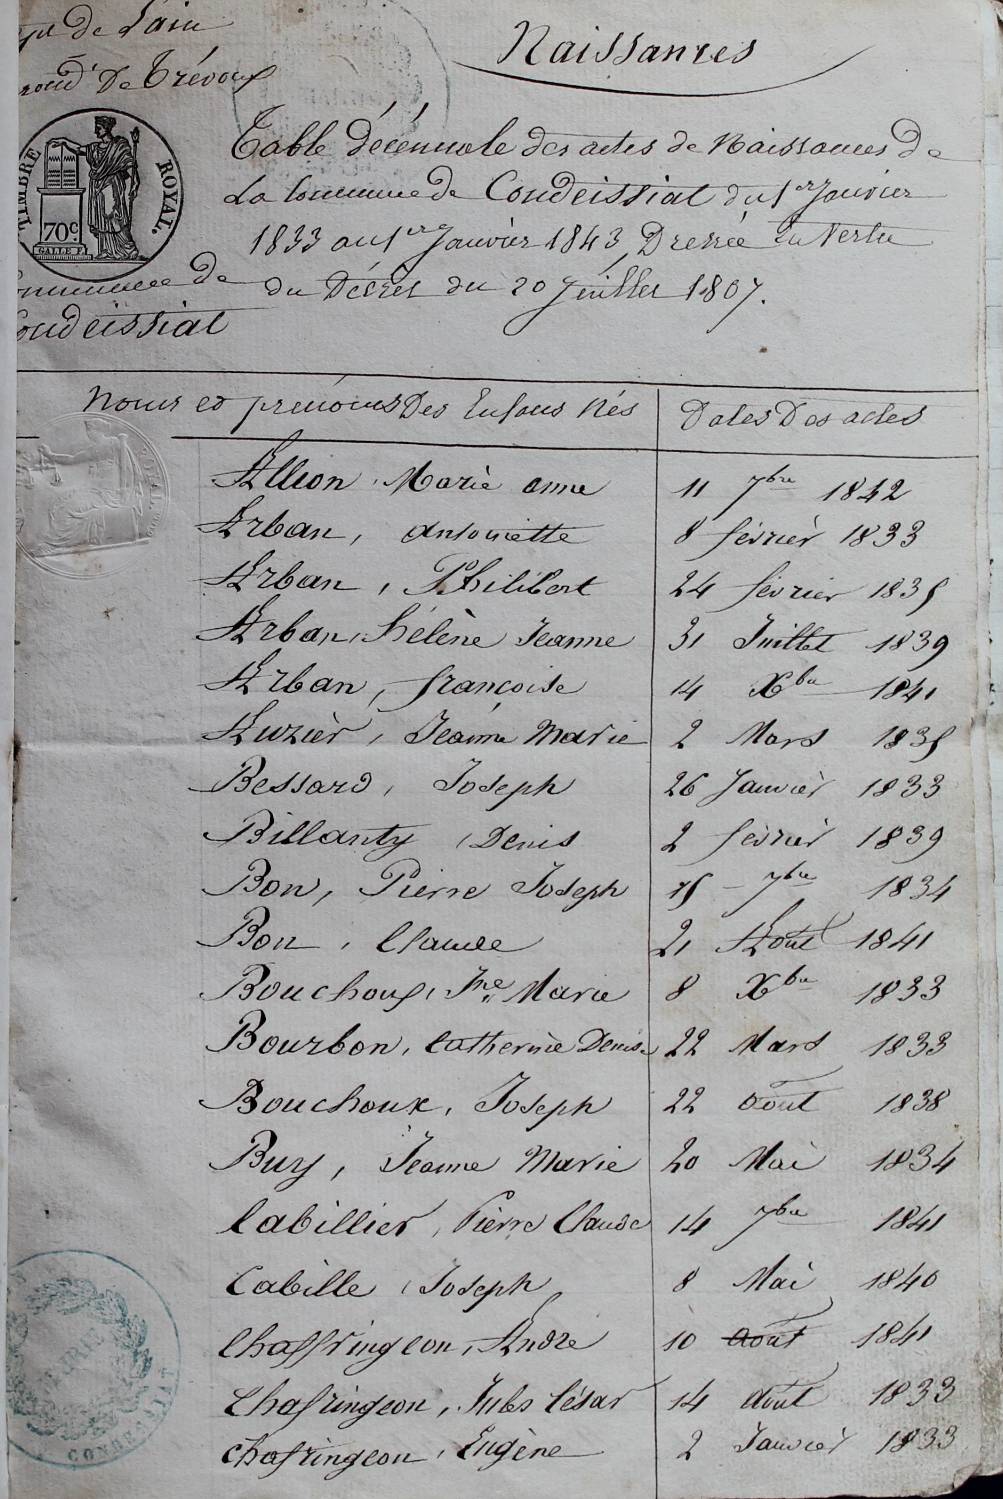 de l'ain
Naissances
De Trévoux
TIMBRE ROYAL.
70c
Table décennale des actes de Naissances de
La Commune de Condeissiat du 1er Janvier
1833 au 1er Janvier 1843, Dressée En Vertu
du Décret du 20 Juillet 1807.
de
Condeissiat
Noms et prénoms Des Enfans Nés
Dates Des actes
Allion, Marie anne 11 7bre 1842
Arban, antoinette 8 février 1833
Arban, Philibert 24 février 1835
Arban, hélène Jeanne 31 Juillet 1839
Arban, françoise 14 Xbre 1841
Auzier, Jeanne Marie 2 Mars 1835
Bessard, Joseph 26 Janvier 1833
Billanty, Denis 2 février 1839
Bon, Pierre Joseph 15 7bre 1834
Bon, Claude 21 Août 1841
Bouchoux, Jne Marie 8 Xbre 1833
Bourbon, Catherine Denise 22 Mars 1833
Bouchoux, Joseph 22 août 1838
Buy, Jeanne Marie 20 Mai 1834
Cabillier, Pierre Claude 14 7bre 1841
Cabille, Joseph 8 Mai 1840
Chaffringeon, André 10 août 1841
Chafringeon, Jules César 14 août 1833
Chafringeon, Eugène 2 Janvier 1833